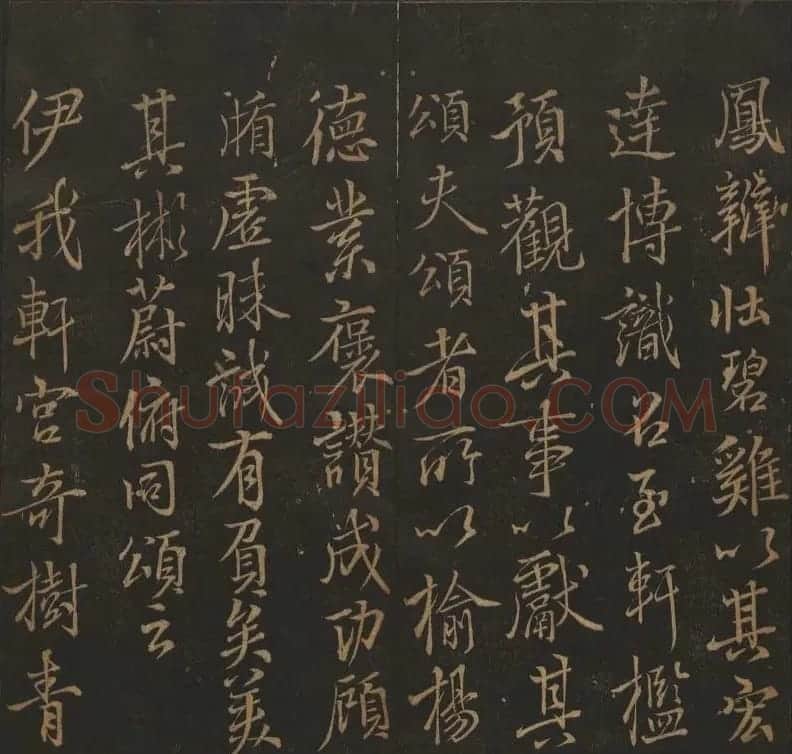 鳳辯壯碧雞以其宏
達博識召至軒檻
預觀其事以獻其
頌夫頌者所以榆楊
德業褒讚成功顧
循虛昧誠有負矣美
其彬蔚俯同頌云
伊我軒宮奇樹青
Shufaziliao.COM